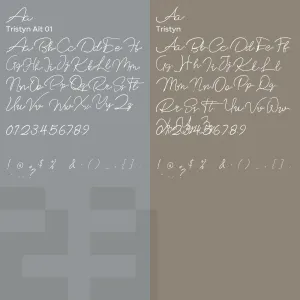 Aa
Tristyn Alt 01
Aa Bb Cc Dd Ee Ff
Gg Hh Ii Jj Kk Ll
Mm Nn Oo Pp Qq Rr Ss Tt
Uu Vv Ww Xx Yy Zz
0123456789
Aa
Tristyn
Aa Bb Cc Dd Ee Ff
Gg Hh Ii Jj Kk Ll
Mm Nn Oo Pp Qq
Rr Ss Tt Uu Vv Ww
Xx Yy Zz
0123456789